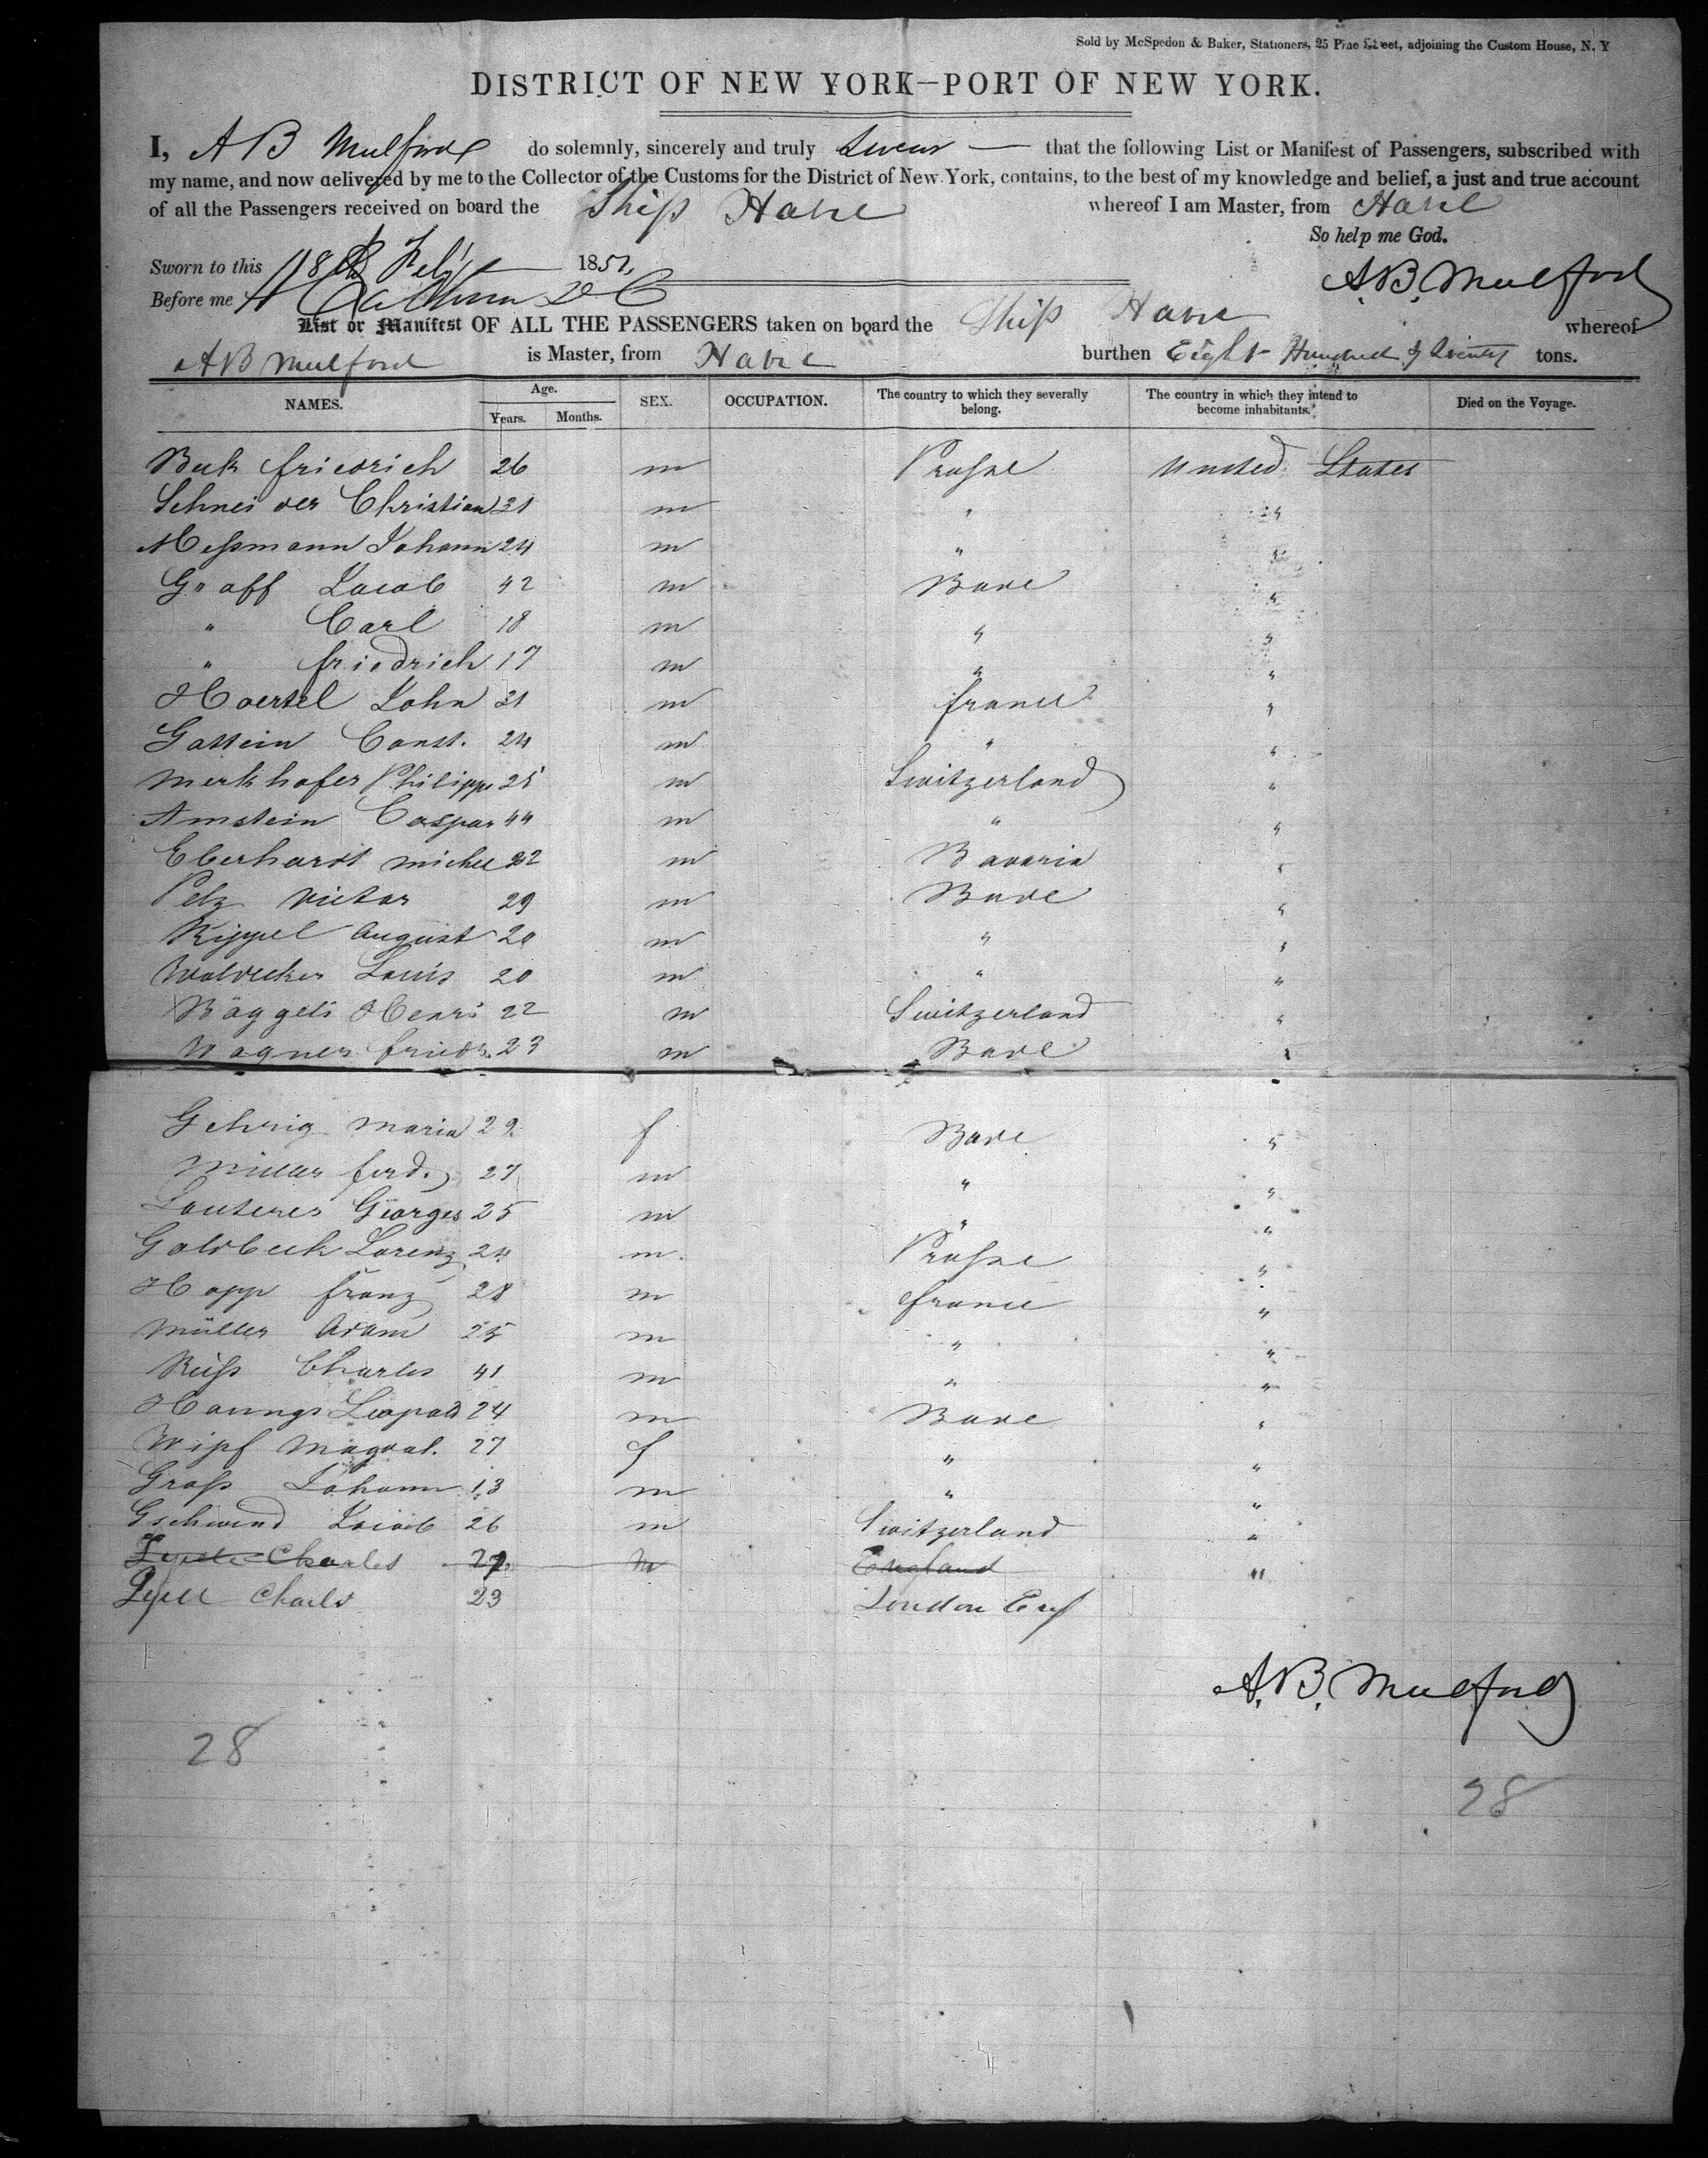 Sold by McSpedon & Baker, Stationers, 25 Pine Street, adjoining the Custom House, N. Y
DISTRICT OF NEW YORK—PORT OF NEW YORK.
I, A B Mulford do solemnly, sincerely and truly Swear — that the following List or Manifest of Passengers, subscribed with
my name, and now delivered by me to the Collector of the Customs for the District of New York, contains, to the best of my knowledge and belief, a just and true account
of all the Passengers received on board the Ship Havre whereof I am Master, from Havre
So help me God.
Sworn to this 18th Feby 1852
A. B. Mulford
Before me
List or Manifest OF ALL THE PASSENGERS taken on board the Ship Havre whereof
A B Mulford is Master, from Havre burthen Eight Hundred & Twenty tons.
NAMES. Age. Years. Months. SEX. OCCUPATION. The country to which they severally belong. The country in which they intend to become inhabitants. Died on the Voyage.
Beck friedrich 26 m Prusse United States
Schneider Christian 31 m " "
Messmann Johann 24 m " "
Graff Jacob 42 m Bade "
" Carl 18 m " "
" friedrich 17 m " "
Haertel John 31 m france "
Gassein Const. 24 m " "
Merkhofer Philippe 25 m Switzerland "
Amstein Caspar 44 m " "
Eberhardt michel 22 m Bavaria "
Pelz Victor 29 m Bade "
Rippel August 20 m " "
Waldecker Louis 20 m " "
Bäggeli Henri 22 m Switzerland "
Wagner friedr. 23 m Bade "
Gehrig Maria 29 f Bade "
Müller ferd. 27 m " "
Lauterer Georges 25 m " "
Goldbeck Lorenz 24 m Prusse "
Happ franz 28 m france "
Müller Adam 25 m " "
Reiss Charles 41 m " "
Haungs Leopold 24 m Bade "
Wipf Magdal. 27 f " "
Grass Johann 13 m " "
Gschwend Jacob 26 m Switzerland "
Charles 27 m England "
Lyell Charls 23 London Eng
A. B. Mulford
28
28